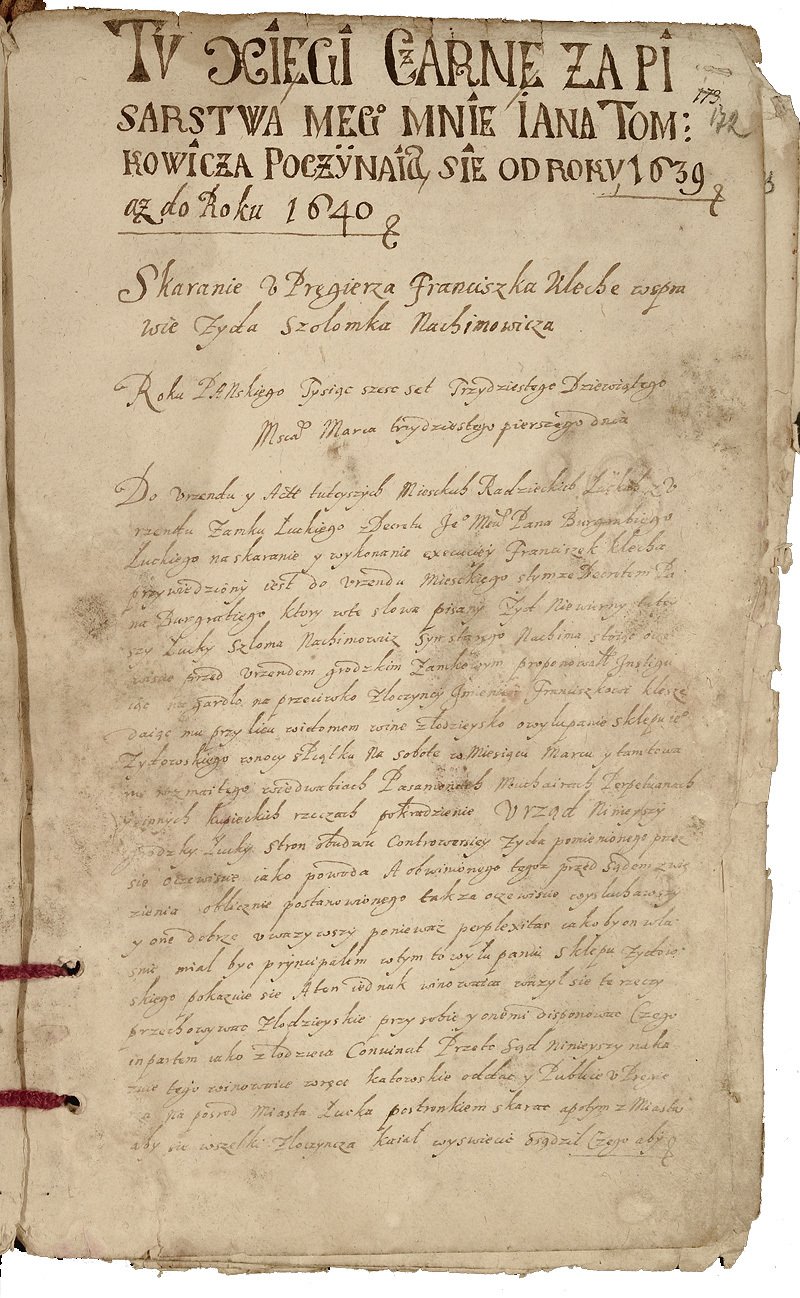 TV XIĘGI CZARNE ZA PI
173
172
SARSTWA MEGo MNIE IANA TOM:
KOWICZA POCZŸNAIĄ SIE OD ROKV 1639
aż do Roku 1640
Skaranie v Pręgierza Franciszka Kleche wspra
wie Żyda Szolomka Nachimowicza
Roku PANskiego Tysiąc szesc set Trzydziestego Dziewiątego
Msca Marca trzydziestego pierszego dnia
Do Vrzendu y Actt tuteyszych Mieskich Radzieckich Łuckich z V
rzendu Zamku Łuckiego z Decretu Je° Pana Burgrabiego
Łuckiego na skaranie y wykonanie execuciey Franciszek Klecha
przywiedziony iest do Vrzendu Mieskiego stymze Decretem Pa
na Burgrabiego ktory wte slowa pisany Żyd Niewierny tute
szy Łucky Szloma Nachimowicz syn starego Nachima stoiąc oce
przed Vrzendem grodzkim Zamkowym proponowałł Instigu
iąc na gardło na przeciwko Złoczyncy Imieniem Franciszkowi klesze
daiąc mu przy licu widomem wine złodzieysko o wylupanie sklepu ie°
Żydowskiego wnocy sPiątku na Sobote w Miesiącu Marcu y tam towa
rozmaitego wiedwabiach Pasamonach Muchairach Perpetuanach
y innych kupieckich rzeczach pokradzienie Vrząd Ninieyszy
grodzky Łucky Stron obudwu Controwersiey Żyda pomienionego prze
sie oczewisto iako powoda A obwinionego tegoz przed sądem z wie
zienia oblicznie postanowionego takza oczewisto wysluchawszy
y one dobrze vwazywszy poniewaz perplexitas iakoby on wła
snie mial byc principalem wtym to wyłupaniu sklepu Żydow
skiego pokazuie sie A ten iednak winowaica wazył sie te rzeczy
przechowywac Złodzieyskie przy sobie y onemi disponowac Czego
in partem iako złodzieia Convincit Przeto Sąd Ninieyszy naka
zuie tego winowaice wręce katowskie oddac y Publice v Pręgie
rza na posrod Miasta Łucka postronkiem skarac a potym z Miasta
aby sie wszelki Złoczyncza kaiał wyswiecic osądził Czego aby